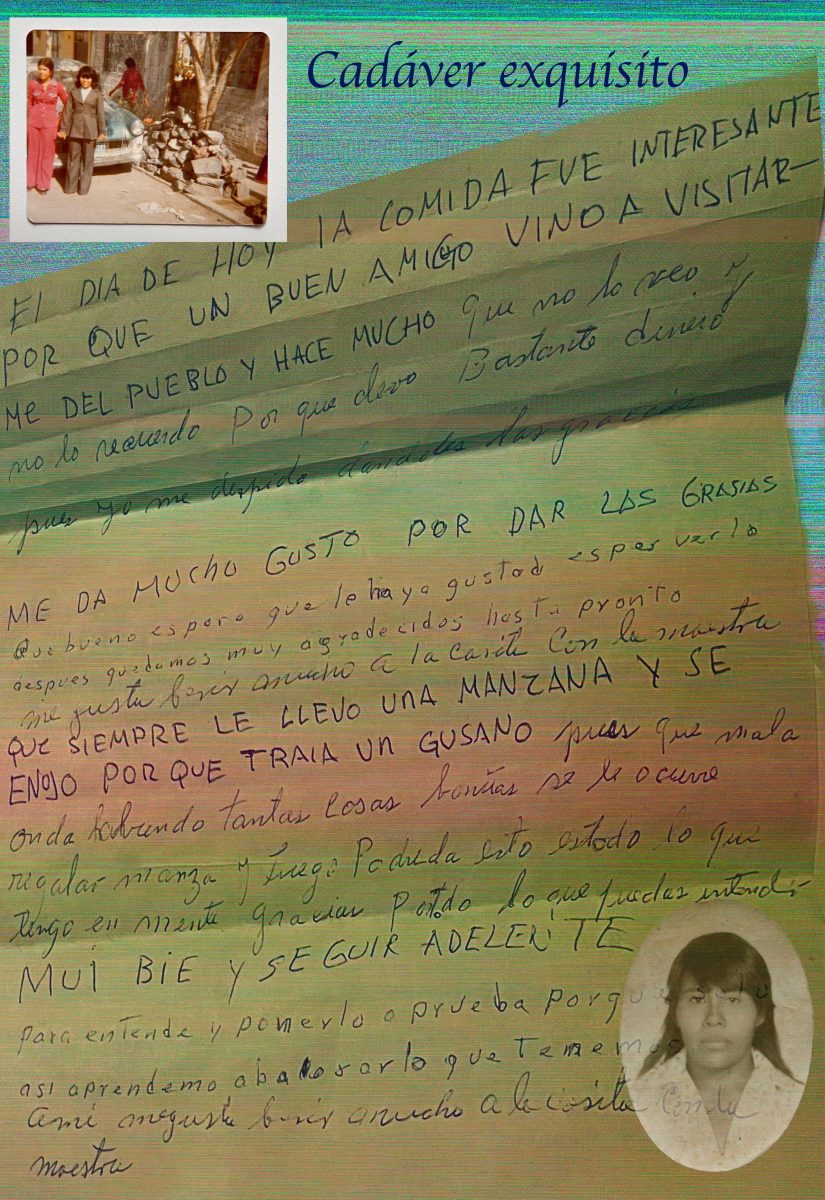 Cadáver exquisito
El DIA DE HOY lA COMIDA FUE INTERESANTE
POR QUE UN BUEN AMIGO VINO A VISITAR-
Me DEL PUEBLO Y HACE MUCHO que no lo veo y
no lo recuerdo Por que devo Bastante dinero
pues yo me despido dandoles las gracias
ME DA MUCHO GUSTO POR DAR LAS GRASIAS
Que bueno espero que le haya gustado esper verlo
despues quedamos muy agradecidos hasta pronito
me gusta benir mucho a la casita Con la maestra
QUE SIEMPRE LE LLEVO UNA MANZANA Y SE
ENOJO PORQUE TRAIA UN GUSANO pues que mala
onda habiendo tantas Cosas bonitas se le ocurre
regalar manza y luego Podrida esto estodo lo que
tengo en mente gracias Potodo lo que puedas entendir
MUI BIE Y SEGUIR ADELENTE
para entende y ponerlo a prueba porque solo
asi aprendemo abalorar lo que Tenemos
Ami megusta benir mucho a la casita Conla
maestra